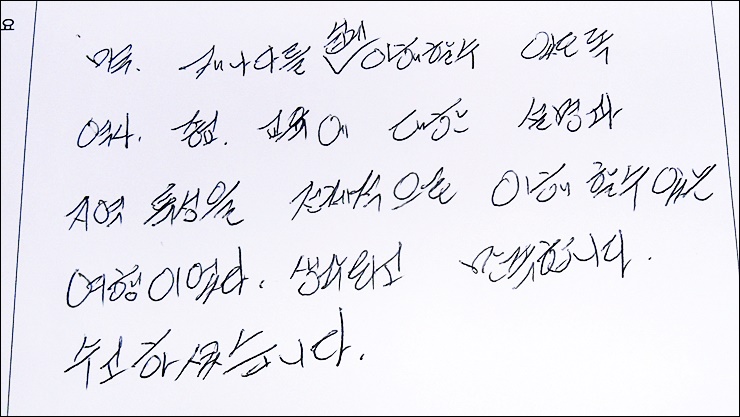 요
미국. 캐나다를 쉽게 이해할수 있도록
역사. 종교. 교육에 대한 설명과
지역 특성을 전체적으로 이해 할수 있는
여행이었다. 만족합니다.
수고하셨습니다.